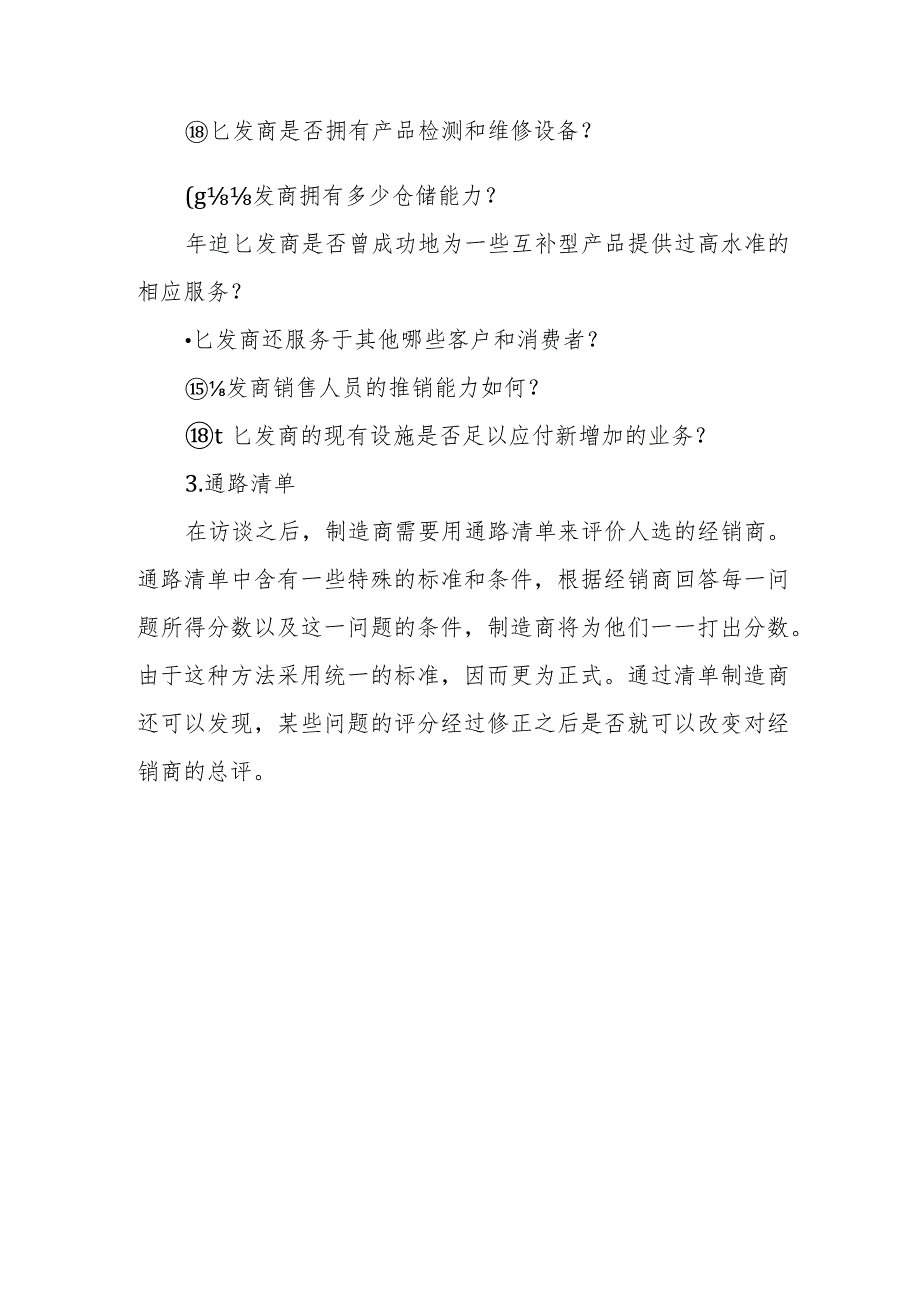 ⑱匕发商是否拥有产品检测和维修设备？
(g⅛⅛发商拥有多少仓储能力？
年迫匕发商是否曾成功地为一些互补型产品提供过高水准的
相应服务？
•匕发商还服务于其他哪些客户和消费者？
⑮⅛发商销售人员的推销能力如何？
⑱t 匕发商的现有设施是否足以应付新增加的业务？
3.通路清单
在访谈之后，制造商需要用通路清单来评价人选的经销商。
通路清单中含有一些特殊的标准和条件，根据经销商回答每一问
题所得分数以及这一问题的条件，制造商将为他们一一打出分数。
由于这种方法采用统一的标准，因而更为正式。通过清单制造商
还可以发现，某些问题的评分经过修正之后是否就可以改变对经
销商的总评。